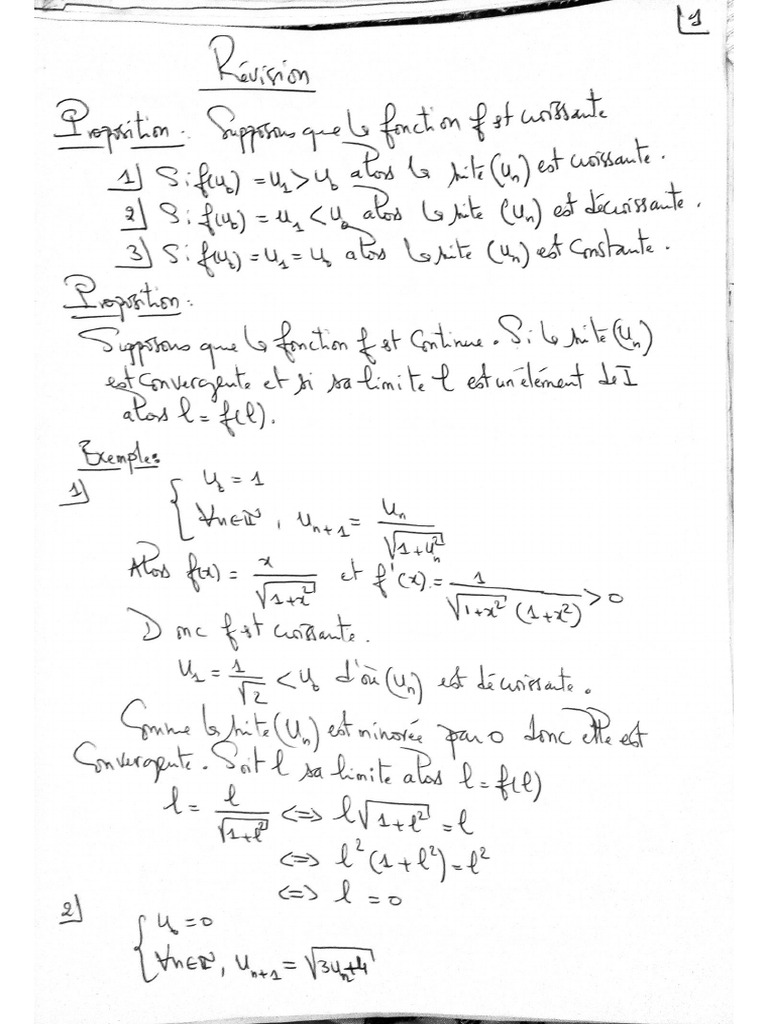 1
Révision
Proposition : Supposons que la fonction f est croissante
1) Si f(u₀) = u₁ > u₀ alors la suite (uₙ) est croissante.
2) Si f(u₀) = u₁ < u₀ alors la suite (uₙ) est décroissante.
3) Si f(u₀) = u₁ = u₀ alors la suite (uₙ) est constante.
Proposition :
Supposons que la fonction f est continue. Si la suite (uₙ)
est convergente et si sa limite l est un élément de I
alors l = f(l).
Exemples
1)
{ u₀ = 1
{ ∀n∈ℕ, uₙ₊₁ = uₙ / √(1+uₙ²)
Alors f(x) = x / √(1+x²) et f'(x) = 1 / (√(1+x²) (1+x²)) > 0
Donc f est croissante.
u₁ = 1/√2 < u₀ d'où (uₙ) est décroissante.
Comme la suite (uₙ) est minorée par 0 donc elle est
convergente. Soit l sa limite alors l = f(l)
l = l / √(1+l²) <=> l√(1+l²) = l
<=> l²(1+l²) = l²
<=> l = 0
2)
{ u₀ = 0
{ ∀n∈ℕ, uₙ₊₁ = √(3uₙ+4)